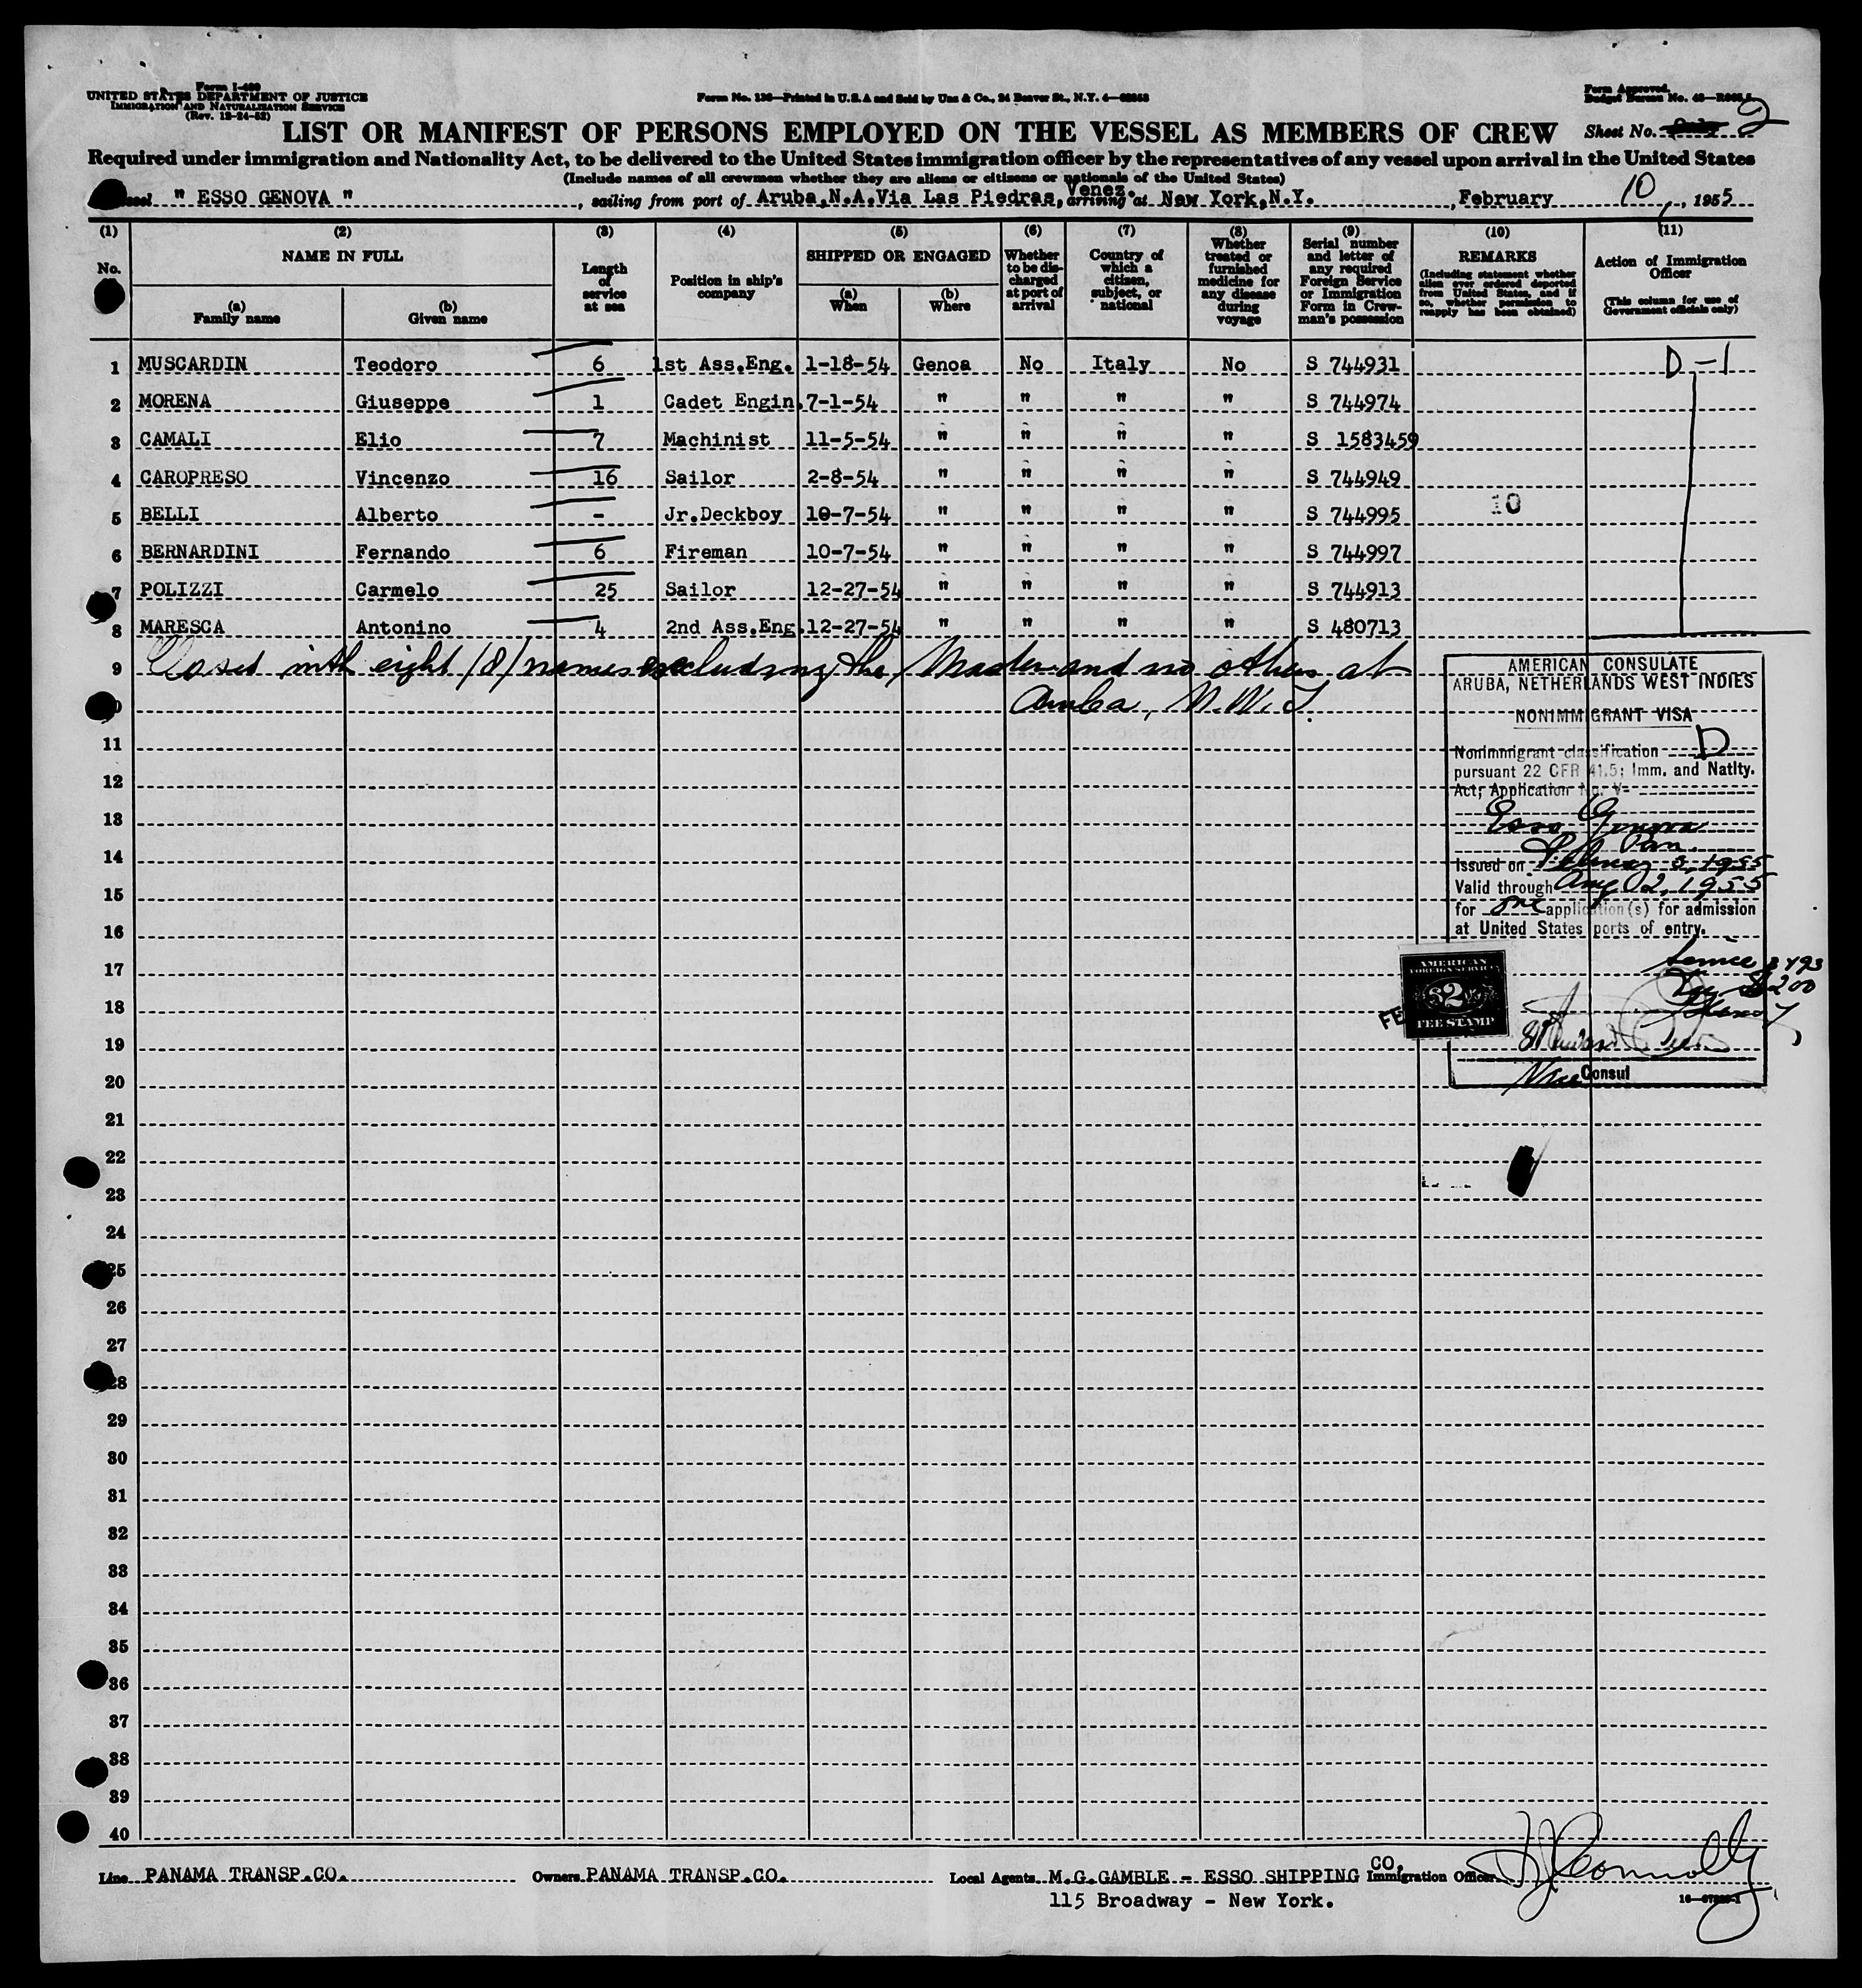 Form I-489
UNITED STATES DEPARTMENT OF JUSTICE
IMMIGRATION AND NATURALIZATION SERVICE
(Rev. 12-24-52)
Form No. 136—Printed in U.S.A and Sold by Unz & Co., 24 Beaver St., N.Y. 4—
Form Approved.
Budget Bureau No.
LIST OR MANIFEST OF PERSONS EMPLOYED ON THE VESSEL AS MEMBERS OF CREW Sheet No. 2
Required under immigration and Nationality Act, to be delivered to the United States immigration officer by the representatives of any vessel upon arrival in the United States
(Include names of all crewmen whether they are aliens or citizens or nationals of the United States)
" ESSO GENOVA ", sailing from port of Aruba,N.A.Via Las Piedras, Venez. arriving at New York,N.Y., February 10, 1955
(1) (2) (3) (4) (5) (6) (7) (8) (9) (10) (11)
No. NAME IN FULL (a) Family name (b) Given name
Length of service at sea
Position in ship's company
SHIPPED OR ENGAGED (a) When (b) Where
Whether to be discharged at port of arrival
Country of which a citizen, subject, or national
Whether treated or furnished medicine for any disease during voyage
Serial number and letter of any required Foreign Service or Immigration Form in Crewman's possession
REMARKS (Including statement whether alien ever ordered deported from United States, and if so, whether permission to reapply has been obtained)
Action of Immigration Officer (This column for use of Government officials only)
1 MUSCARDIN Teodoro 6 1st Ass.Eng. 1-18-54 Genoa No Italy No S 744931 D-1
2 MORENA Giuseppe 1 Cadet Engin. 7-1-54 " " " " S 744974
3 CAMALI Elio 7 Machinist 11-5-54 " " " " S 1583459
4 CAROPRESO Vincenzo 16 Sailor 2-8-54 " " " " S 744949
5 BELLI Alberto - Jr.Deckboy 10-7-54 " " " " S 744995 10
6 BERNARDINI Fernando 6 Fireman 10-7-54 " " " " S 744997
7 POLIZZI Carmelo 25 Sailor 12-27-54 " " " " S 744913
8 MARESCA Antonino 4 2nd Ass.Eng. 12-27-54 " " " " S 480713
9 Closed with eight /8/ names excluding the Master and no others at
Aruba, N.W.I.
11
12
13
14
15
16
17
18
19
20
21
22
23
24
25
26
27
28
29
30
31
32
33
34
35
36
37
38
39
40
AMERICAN CONSULATE
ARUBA, NETHERLANDS WEST INDIES
NONIMMIGRANT VISA
Nonimmigrant classification D
pursuant 22 CFR 41.5; Imm. and Natlty.
Act; Application No. V-
Esso Genova
Pan.
Issued on February 3, 1955
Valid through Aug 2, 1955
for one application(s) for admission
at United States ports of entry.
Service
AMERICAN
FOREIGN SERVICE
$2
FEE STAMP
Vice Consul
Line PANAMA TRANSP.CO. Owners PANAMA TRANSP.CO. Local Agents M.G.GAMBLE - ESSO SHIPPING CO. Immigration Officer Connolly
115 Broadway - New York.